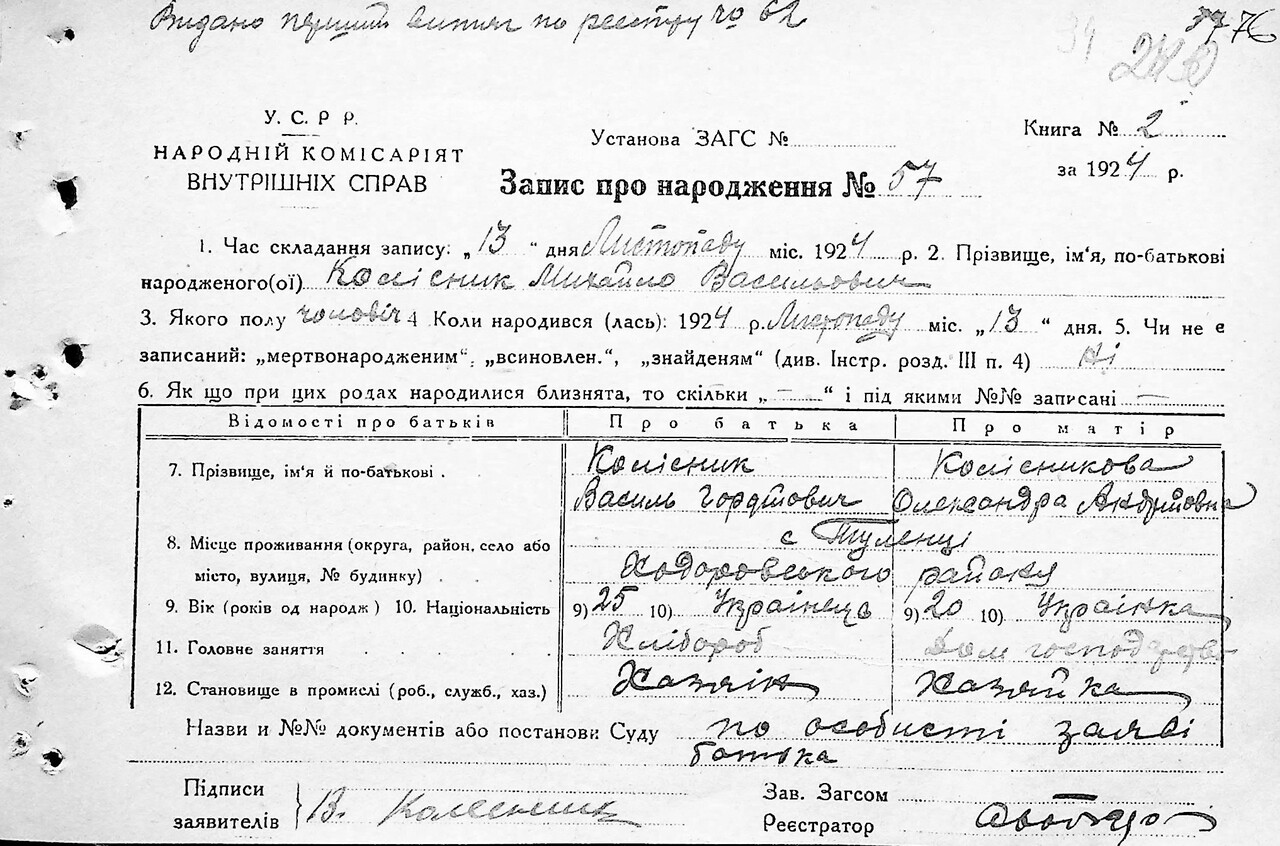 Видано перший витяг по реєстру № 62
76
34
У. С. Р Р.
НАРОДНІЙ КОМІСАРІЯТ
ВНУТРІШНІХ СПРАВ
Установа ЗАГС №
Книга № 2
за 1924 р.
Запис про народження № 57
1. Час складання запису: „13“ дня Листопаду міс. 1924 р. 2. Прізвище, ім‘я, по-батькові
народженого(ої) Колісник Михайло Васильович
3. Якого полу чоловіч 4 Коли народився (лась): 1924 р. Листопаду міс. „13“ дня. 5. Чи не є
записаний: „мертвонародженим“, „всиновлен.“, „знайденям“ (див. Інстр. розд. III п. 4) Ні
6. Як що при цих родах народилися близнята, то скільки „—“ і під якими №№ записані —
Відомості про батьків Про батька Про матір
7. Прізвище, ім‘я й по-батькові . Колісник Колісникова
Василь Гордійович Олександра Андріївна
8. Місце проживання (округа, район, село або с Туленці
місто, вулиця, № будинку) . . Ходоровського району
9. Вік (років од народж) 10. Національність 9) 25 10) Українець 9) 20 10) Українка
11. Головне заняття . . . . . Хлібороб Дом господарство
12. Становище в промислі (роб., служб., хаз.) Хазяїн Хазяйка
Назви и №№ документів або постанови Суду по особисті заяві
батька
Підписи
заявителів В. Колесник
Зав. Загсом
Реєстратор